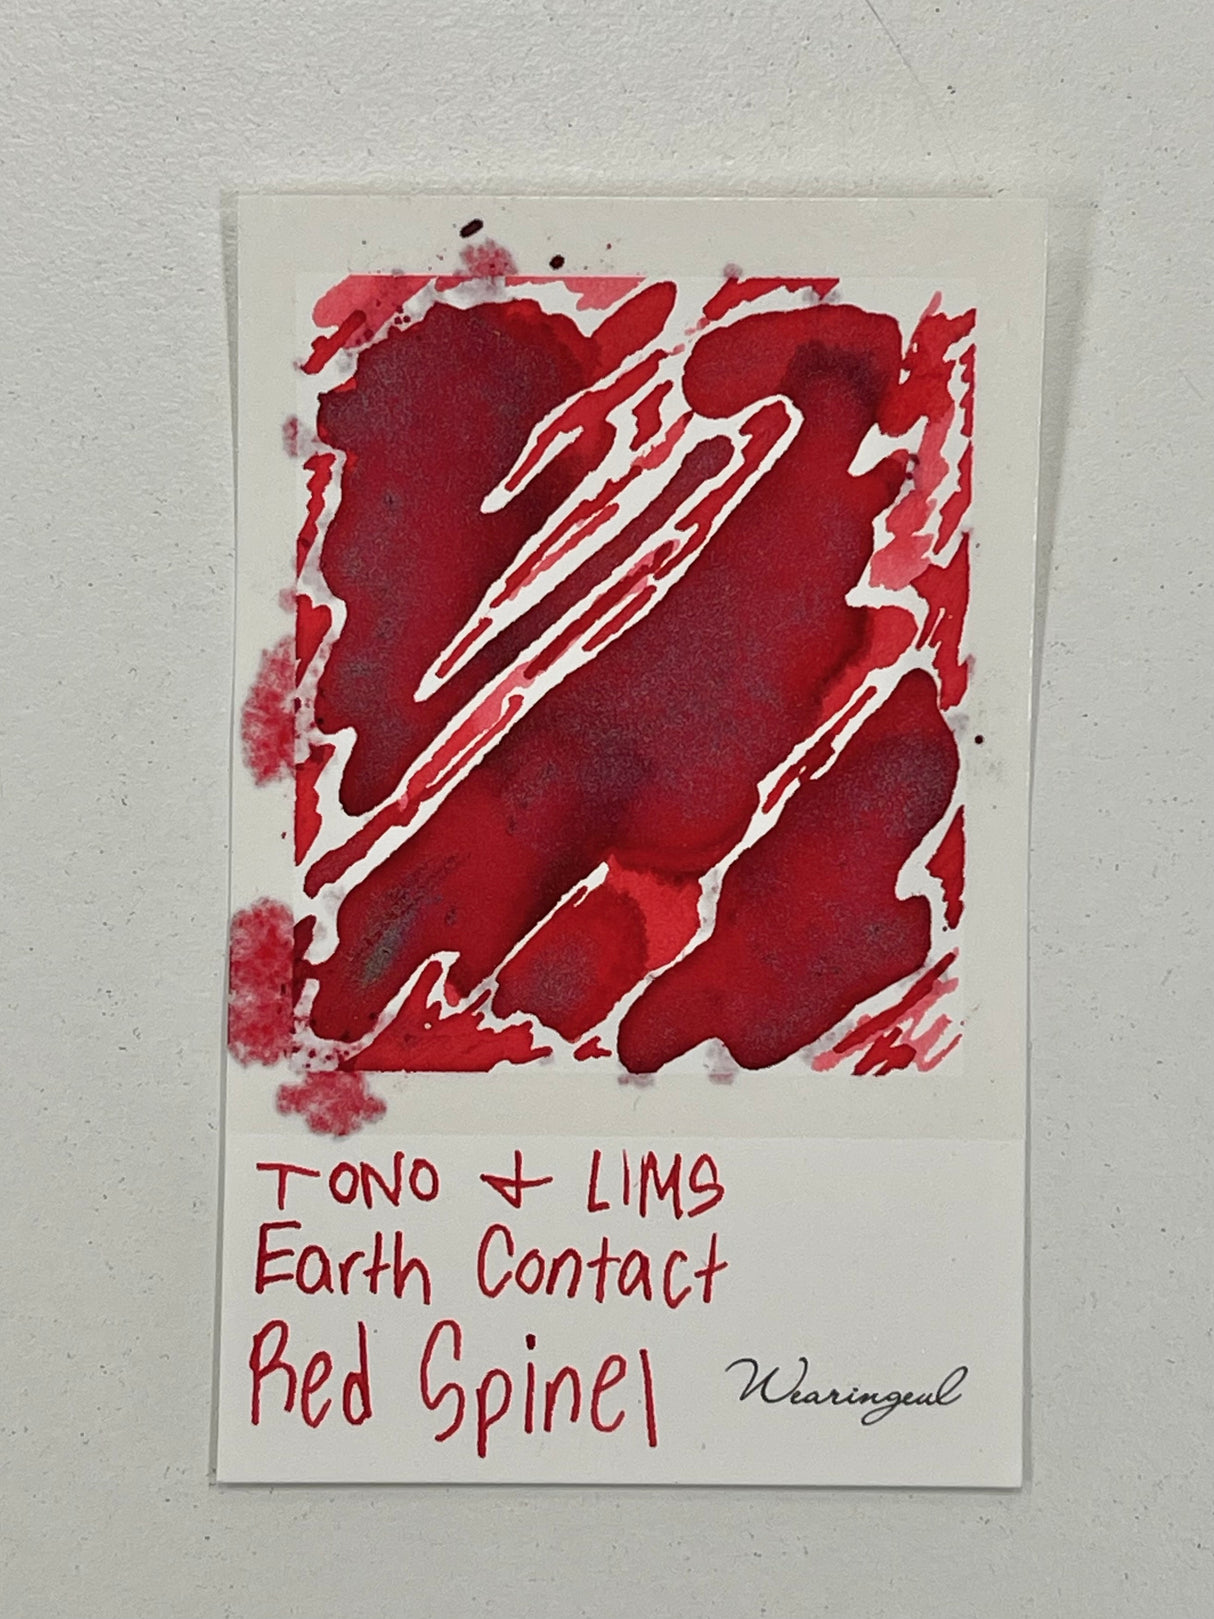 TONO & LIMS
Earth Contact
Red Spinel
Wearingeul